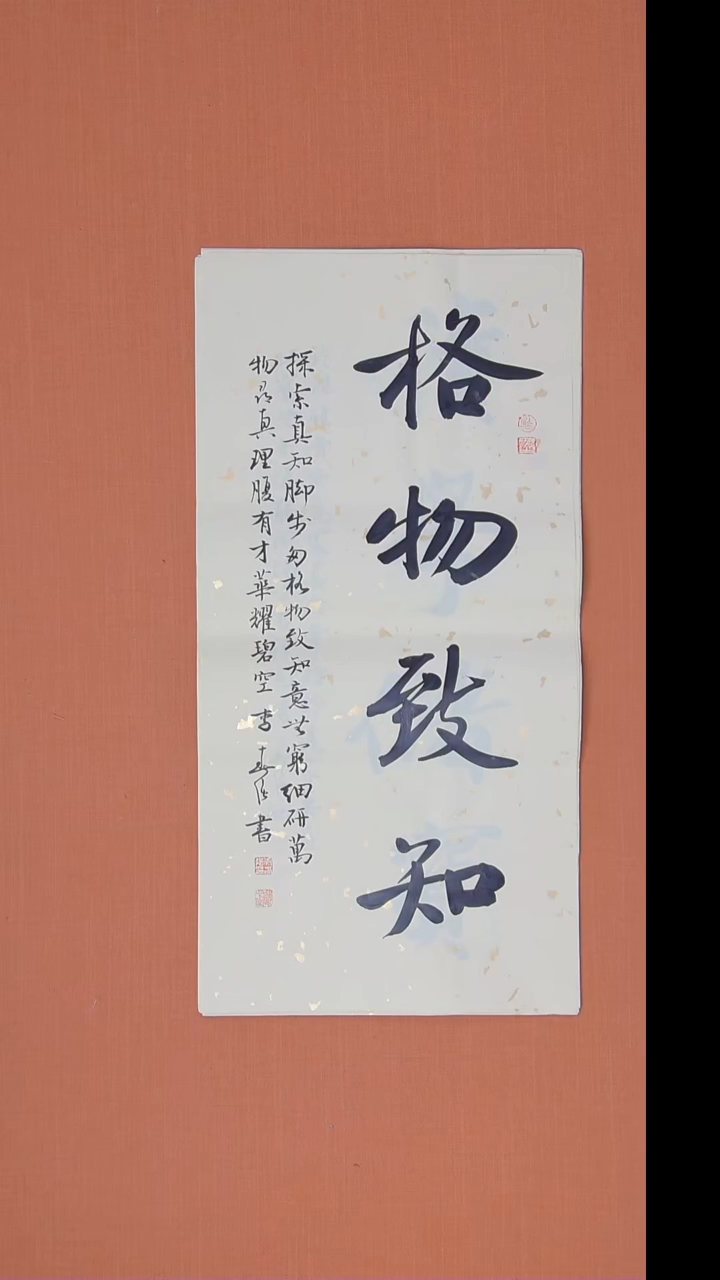 格物致知
探索真知脚步匆格物致知意无穷细研萬
物寻真理腹有才華耀碧空 李 書